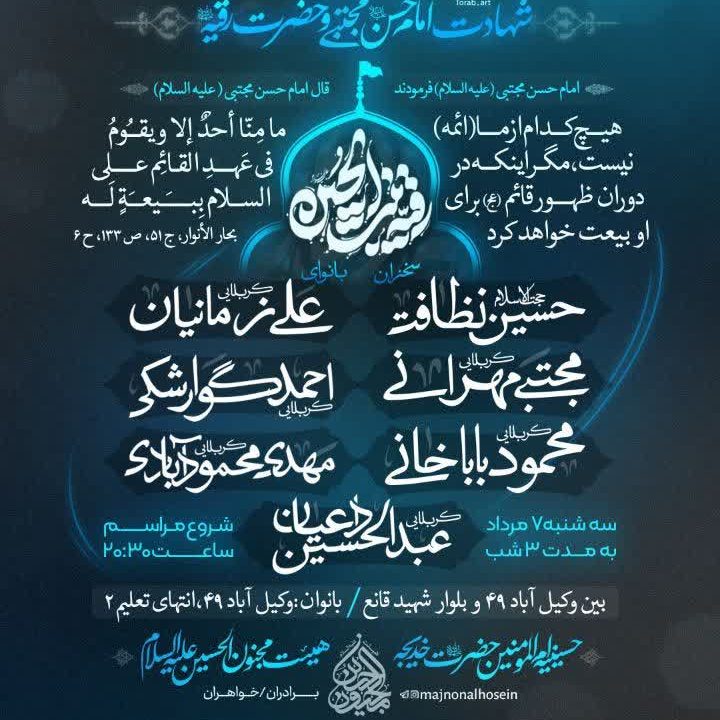 Torab_art
شهادت امام حسن مجتبی و حضرت رقیه
امام حسن مجتبی (علیه السلام) فرمودند
هیچ کدام از ما (ائمه)
نیست، مگر اینکه در
دوران ظهور قائم (عج) برای
او بیعت خواهد کرد
قال امام حسن مجتبی (علیه السلام)
ما مِنّا أحدٌ إلا ویقومُ
فی عَهدِ القائِم علی
السلام بِبَیعةٍ لَه
بحار الأنوار، ج۵۱، ص۱۳۳، ح۶
رقیه بنت الحسین
سخنران
بانوای
حجت الاسلام حسین نظافت
کربلایی علی زمانیان
کربلایی مجتبی مهرانی
کربلایی احمد گوارشکی
کربلایی محمود باباخانی
کربلایی مهدی محمودآبادی
کربلایی عبدالحسین داعیان
سه شنبه ۷ مرداد
به مدت ۳ شب
شروع مراسم
ساعت ۲۰:۳۰
بین وکیل آباد ۴۹ و بلوار شهید قانع / بانوان: وکیل آباد ۴۹، انتهای تعلیم ۲
حسینیه ام المومنین حضرت خدیجه
هیئت مجنون الحسین علیه السلام
@majnonalhosein
برادران/خواهران